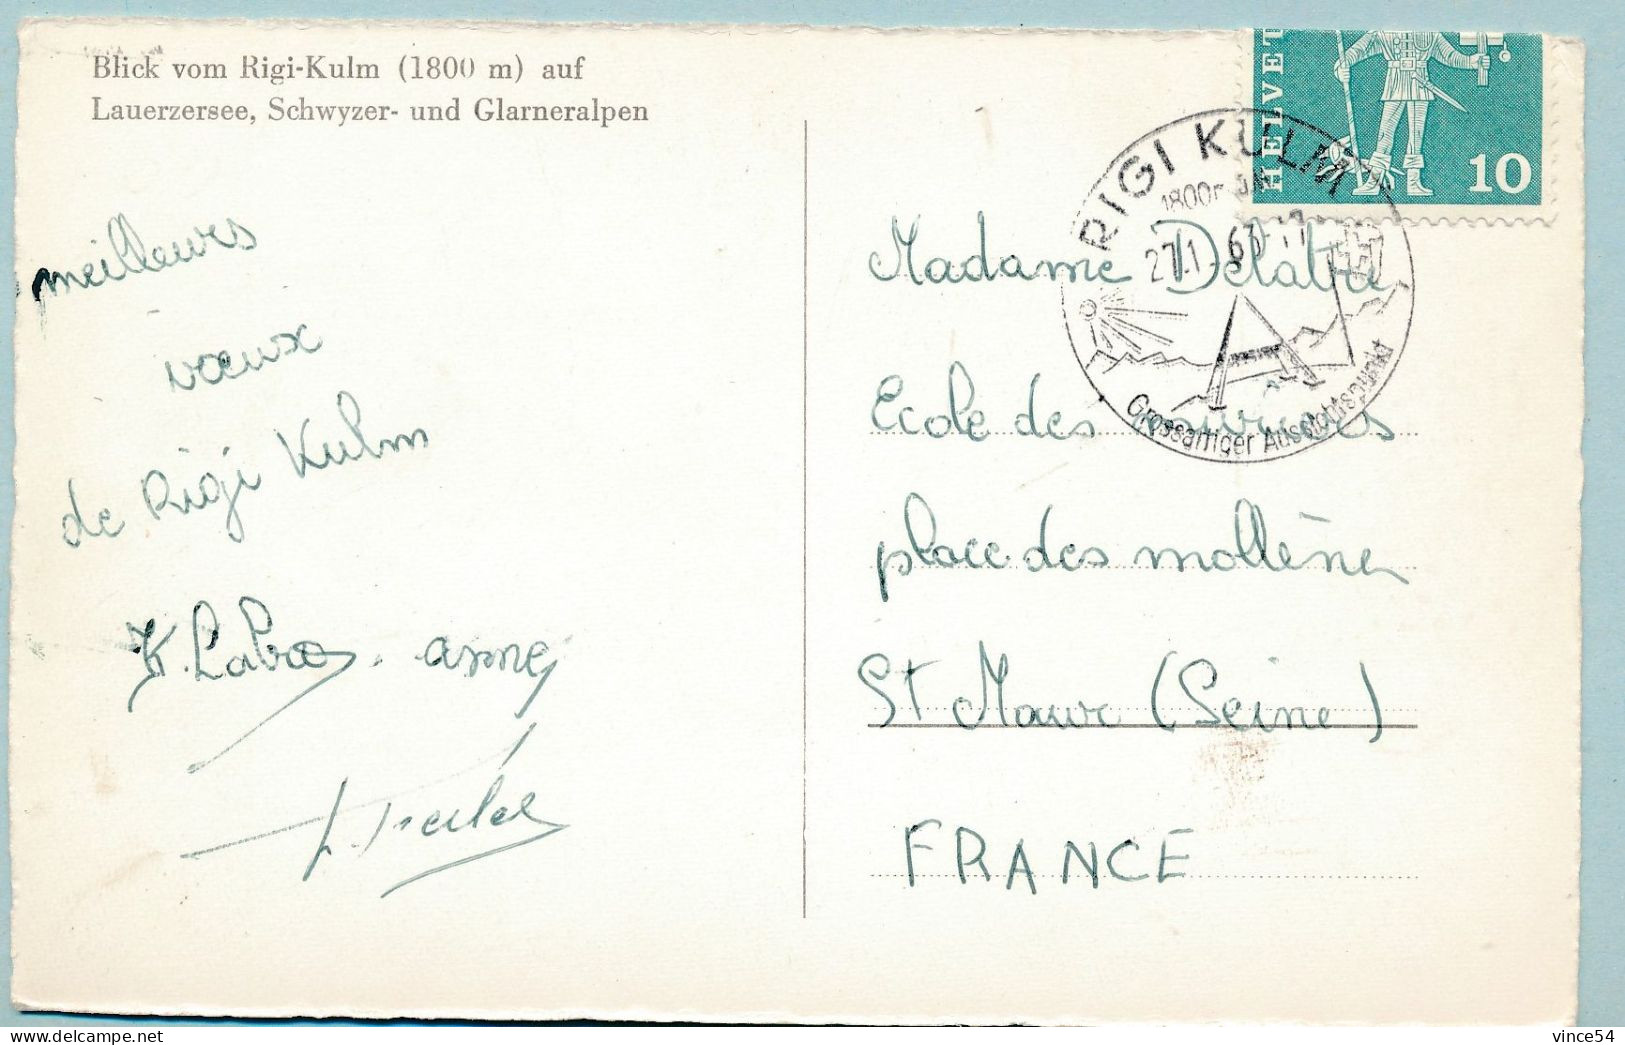 Blick vom Rigi-Kulm (1800 m) auf
Lauerzersee, Schwyzer- und Glarneralpen
meilleurs
vœux
de Rigi Kulm
HELVET
10
RIGI KULM
1800
27.1 63-17
Grossartiger Aussichtspunkt
Madame Delabre
Ecole des
place des molléne
St Maur (Seine)
FRANCE
vince54